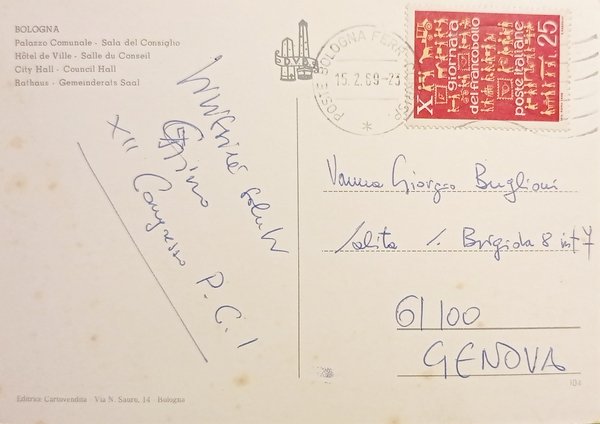 BOLOGNA
Palazzo Comunale - Sala del Consiglio
Hôtel de Ville - Salle du Conseil
City Hall - Council Hall
Rathaus - Gemeinderats Saal
POSTE BOLOGNA FERR
15.2.69-23
X giornata
del francobollo
poste italiane
25
saluti
XII Congresso P.C.I
Vanna Giorgio Buglioni
Salita S. Brigida 8 int 7
16100
GENOVA
104
Editrice Cartovendita - Via N. Sauro, 14 - Bologna